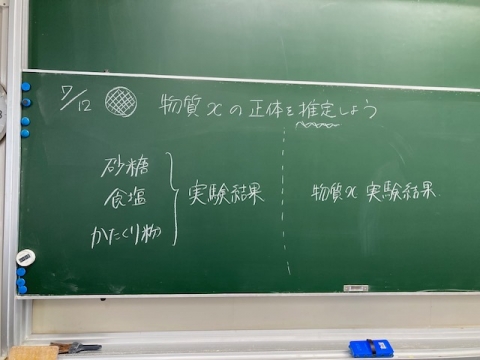 7/12 物質xの正体を推定しよう
砂糖
食塩
かたくり粉
実験結果
物質x 実験結果